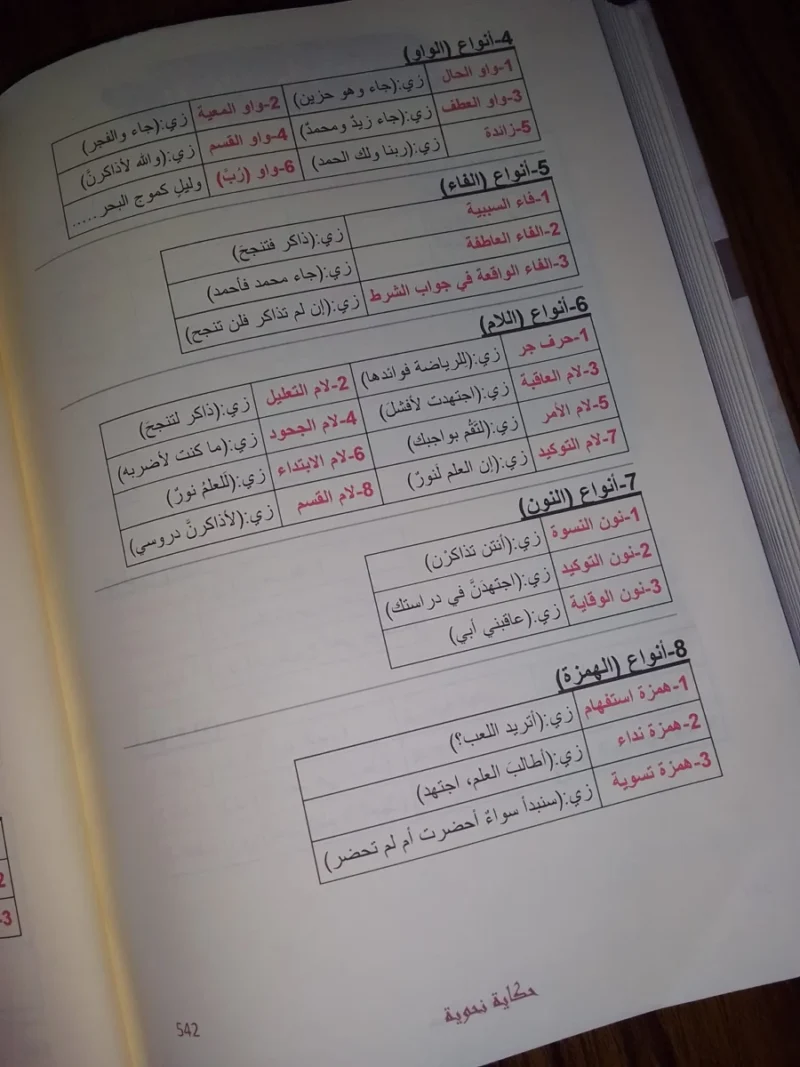 4-أنواع (الواو)
1-واو الحال زي:(جاء وهو حزين) 2-واو المعية زي:(جاء والفجر)
3-واو العطف زي:(جاء زيدٌ ومحمدٌ) 4-واو القسم زي:(والله لأذاكرنَّ)
5-زائدة زي:(ربنا ولك الحمد) 6-واو (رُبّ) وليلٍ كموج البحر.....
5-أنواع (الفاء)
1-فاء السببية زي:(ذاكر فتنجحَ)
2-الفاء العاطفة زي:(جاء محمد فأحمد)
3-الفاء الواقعة في جواب الشرط زي:(إن لم تذاكر فلن تنجح)
6-أنواع (اللام)
1-حرف جر زي:(للرياضة فوائدها) 2-لام التعليل زي:(ذاكر لتنجحَ)
3-لام العاقبة زي:(اجتهدت لأفشلَ) 4-لام الجحود زي:(ما كنت لأضربه)
5-لام الأمر زي:(لتَقُم بواجبك) 6-لام الابتداء زي:(لَلعلمُ نورٌ)
7-لام التوكيد زي:(إن العلم لَنورٌ) 8-لام القسم زي:(لأذاكرنَّ دروسي)
7-أنواع (النون)
1-نون النسوة زي:(أنتن تذاكرْن)
2-نون التوكيد زي:(اجتهدَنَّ في دراستك)
3-نون الوقاية زي:(عاقبني أبي)
8-أنواع (الهمزة)
1-همزة استفهام زي:(أتريد اللعب؟)
2-همزة نداء زي:(أطالبَ العلم، اجتهد)
3-همزة تسوية زي:(سنبدأ سواءٌ أحضرت أم لم تحضر)
حكاية نحوية
542
2
3-